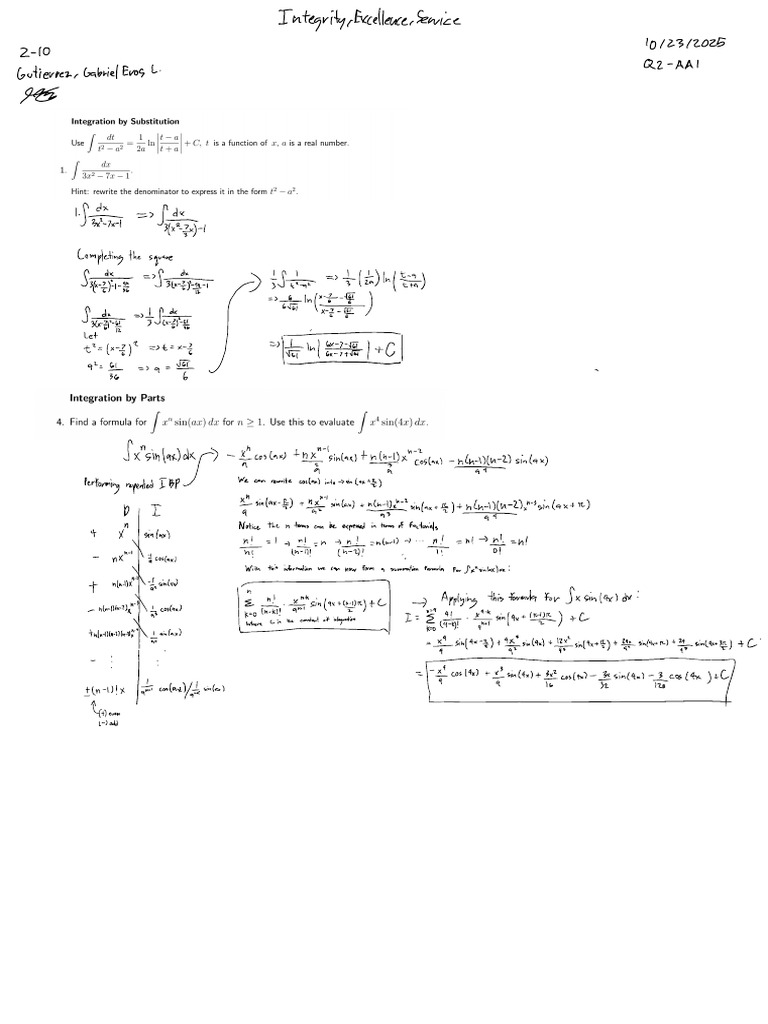 Integrity, Excellence, Service
2-10
10/23/2025
Gutierrez, Gabriel Enos L.
Q2-AA1
Integration by Substitution
Use ∫ dt/(t² − a²) = 1/(2a) ln |(t − a)/(t + a)| + C, t is a function of x, a is a real number.
1. ∫ dx/(3x² − 7x − 1).
Hint: rewrite the denominator to express it in the form t² − a².
1. ∫ dx/(3x²-7x-1) => ∫ dx/(3(x²-7/3x)-1)
Completing the square
∫ dx/(3(x-7/6)²-1-49/36) => ∫ dx/(3(x-7/6)²-49/12-1)
∫ dx/(3(x-7/6)²-61/12) => 1/3 ∫ dx/((x-7/6)²-61/36)
Let
t² = (x-7/6)² => t = x-7/6
a² = 61/36 => a = √61/6
1/3 ∫ 1/(t²-a²) => 1/3 (1/2a) ln((t-a)/(t+a))
=> 6/(6√61) ln((x-7/6-√61/6)/(x-7/6-√61/6))
=> 1/√61 ln|(6x-7-√61)/(6x-7+√61)| + C
Integration by Parts
4. Find a formula for ∫ xⁿ sin(ax) dx for n ≥ 1. Use this to evaluate ∫ x⁴ sin(4x) dx.
∫ xⁿ sin(ax) dx
Performing repeated IBP
D I
+ xⁿ sin(ax)
- nxⁿ⁻¹ -1/a cos(ax)
+ n(n-1)xⁿ⁻² -1/a² sin(ax)
- n(n-1)(n-2)xⁿ⁻³ 1/a³ cos(ax)
- ⋮ ⋮
±(n-1)! x
(+) even
(-) odd
-xⁿ/a cos(ax) + nxⁿ⁻¹/a² sin(ax) + n(n-1)xⁿ⁻²/a³ cos(ax) - n(n-1)(n-2)/a⁴ sin(ax)
We can rewrite cos(ax) into → sin(ax+π/2)
xⁿ/a sin(ax-π/2) + nxⁿ⁻¹/a² sin(ax) + n(n-1)xⁿ⁻²/a³ sin(ax+π/2) + n(n-1)(n-2)xⁿ⁻³/a⁴ sin(ax+π)
Notice the n terms can be expressed in terms of factorials
n!/n! = 1 → n!/(n-1)! = n → n!/(n-2)! = n(n-1) → ⋯ n!/1! = n! → n!/0! = n!
With this information we can now form a summation formula for ∫xⁿ sin(ax)dx:
n∑k=0 n!/(n-k)! · xⁿ⁻ᵏ/aᵏ⁺¹ sin(ax + (k-1)π/2) + C
Where C is the constant of integration
→ Applying this formula for ∫ x sin(4x) dx:
I = ∑k=0 4!/(4-k)! · x⁴⁻ᵏ/4ᵏ⁺¹ sin(4x + (k-1)π/2) + C
= x⁴/4 sin(4x-π/2) + 4x³/4² sin(4x) + 12x²/4³ sin(4x+π/2) + 24x/4⁴ sin(4x+π) + 24/4⁵ sin(4x+3π/2) + C
= -x⁴/4 cos(4x) + x³/4 sin(4x) + 3x²/16 cos(4x) - 3x/32 sin(4x) - 3/128 cos(4x) + C